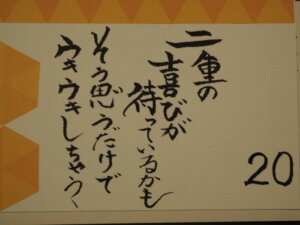 二重の
喜びが
待っているかも
そう思うだけで
ウキウキしちゃう
20